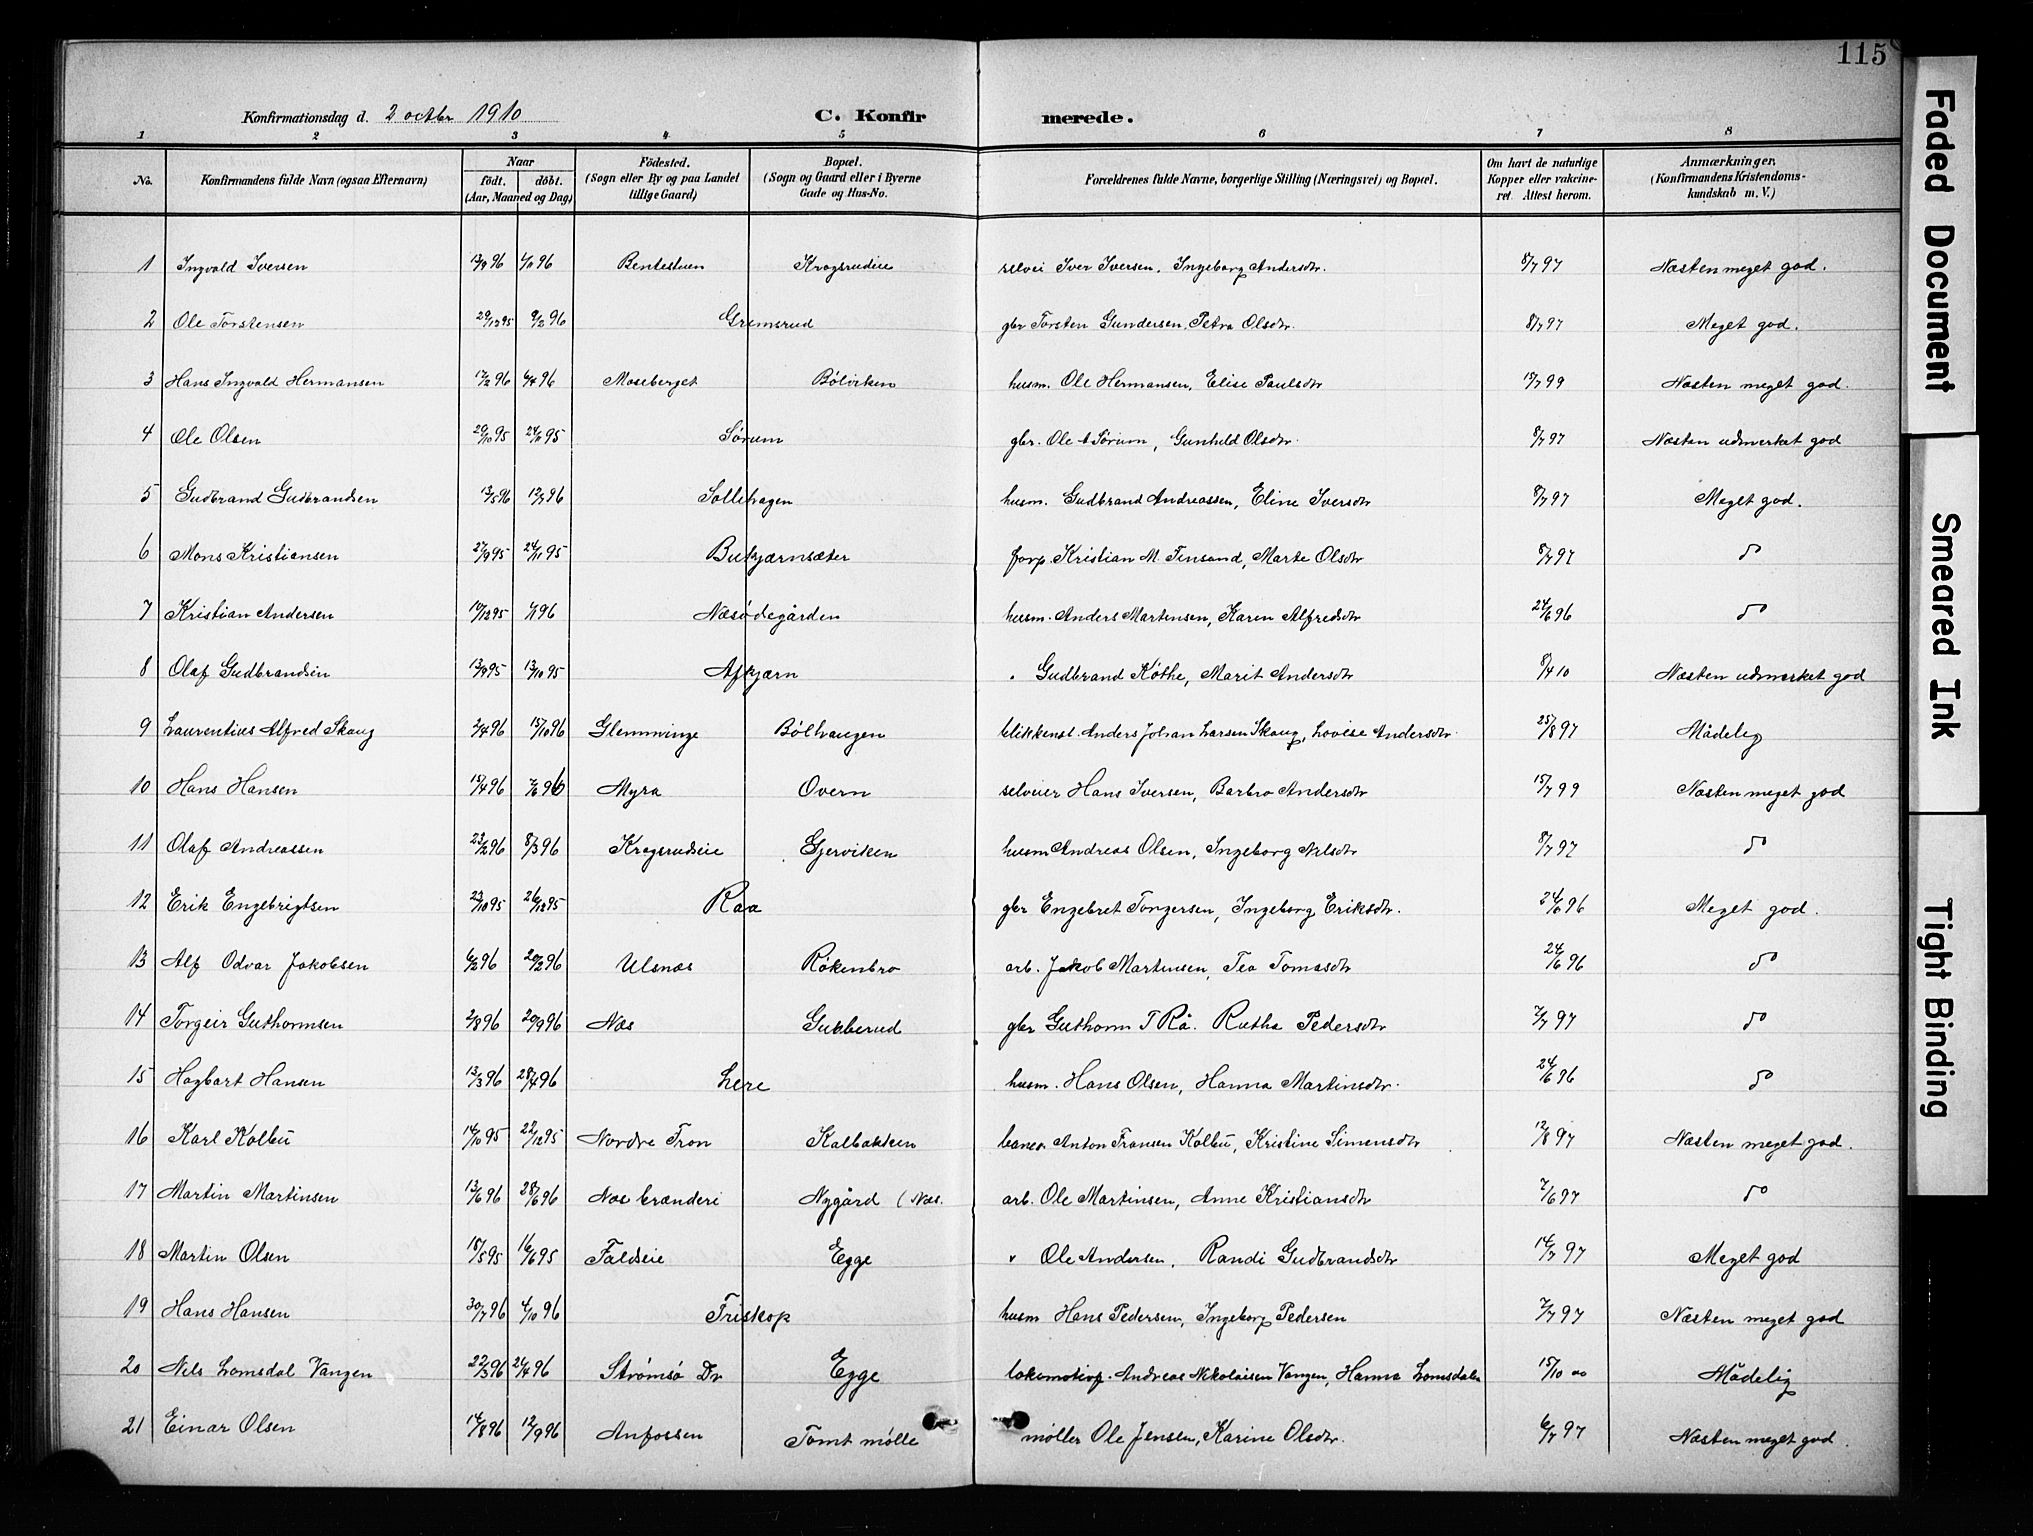 115
Konfirmationsdag d. 2 octbr 1910 C. Konfirmerede.
1 2 3 4 5 6 7 8
No. Konfirmandens fulde Navn (ogsaa Efternavn) Naar født. døbt. (Aar, Maaned og Dag) Fødested. (Sogn eller By og paa Landet tillige Gaard) Bopæl. (Sogn og Gaard eller i Byerne Gade og Hus-No. Forældrenes fulde Navne, borgerlige Stilling (Næringsvei) og Bopæl. Om havt de naturlige Kopper eller vakcineret. Attest herom. Anmærkninger. (Konfirmandens Kristendomskundskab m. V.)
1 Ingvald Iversen 13/9 96 4/10 96 Bentestuen Krogsrudeie selvei Iver Iversen, Ingeborg Andersdtr. 8/7 97 Næsten meget god.
2 Ole Torstensen 29/12 95 9/2 96 Gremsrud gbr Torsten Gundersen, Petra Olsdtr. 8/7 97 Meget god.
3 Hans Ingvald Hermansen 17/2 96 6/4 96 Moseberget Bølviken husm. Ole Hermansen, Elise Paulsdtr 15/7 99 Næsten meget god.
4 Ole Olsen 29/10 95 24/11 95 Sørum gbr. Ole A Sørum, Gunhild Olsdtr. 8/7 97 Næsten udmerket god
5 Gudbrand Gudbrandsen 13/5 96 12/7 96 Sollihagen husm. Gudbrand Andreassen, Eline Iversdtr 8/7 97 Meget god.
6 Mons Kristiansen 27/9 95 24/11 95 Butjernsæter forp. Kristian M. Finsand, Marte Olsdtr 8/7 97 do
7 Kristian Andersen 10/12 95 1/1 96 Næsødegården husm. Anders Martensen, Karen Alfredsdtr 24/6 96 do
8 Olaf Gudbrandsen 13/9 95 13/10 95 Aftjærn " Gudbrand Køthe, Marit Andersdtr 8/4 10 Næsten udmerket god
9 Laurentius Alfred Skaug 2/4 96 15/10 96 Glemminge Bølhaugen blikkensl. Anders Johan Larsen Skaug, Lovise Andersdtr. 25/8 97 Mådelig
10 Hans Hansen 15/4 96 7/6 96 Myra Overn selveier Hans Iversen, Barbro Andersdtr 15/7 99 Næsten meget god
11 Olaf Andreassen 23/2 96 8/3 96 Krogsrudeie Gjerviken husm Andreas Olsen, Ingeborg Nilsdtr 8/7 97 do
12 Erik Engebrigtsen 23/10 95 26/12 95 Raa gbr Engebret Torgersen, Ingeborg Eriksdtr. 24/6 96 Meget god.
13 Alf Odvar Jakobsen 6/2 96 20/2 96 Ulsnæs Røkenbro arb. Jakob Martinsen, Tea Tomasdtr 24/6 96 do
14 Torgeir Guthormsen 2/8 96 20/9 96 Næs Gukberud gbr Guthorm T Rå. Ruthe Pedersdtr 7/7 97 do
15 Hagbart Hansen 13/3 96 28/4 96 Lere husm. Hans Olsen, Hanna Martinsdtr. 24/6 96 do
16 Karl Kolbu 14/10 95 22/12 95 Nordre Fron Kalbakken Anton Fransen Kolbu, Kristine Simensdtr 12/8 97 Næsten meget god.
17 Martin Martinsen 13/6 96 28/6 96 Næs brænderi Nygård (Næs. arb. Ole Martinsen, Anne Kristiansdtr 7/6 97 do
18 Martin Olsen 15/5 95 16/6 95 Faldseie Egge " Ole Andersen, Randi Gudbrandsdtr 14/7 97 Meget god
19 Hans Hansen 30/7 96 4/10 96 Friskop husm Hans Pedersen, Ingeborg Pedersen 7/7 97 Næsten meget god
20 Nils Lomsdal Vangen 22/3 96 24/4 96 Strømsø Dr Egge lokomotivf. Andreas Nikolaisen Vangen, Hanna Lomsdalen 15/10 00 Mådelig
21 Einar Olsen 14/8 96 12/9 96 Anfossen Tomt mølle møller Ole Jensen, Karine Olsdtr. 6/7 97 Næsten meget god.
Faded Document
Smeared Ink
Tight Binding